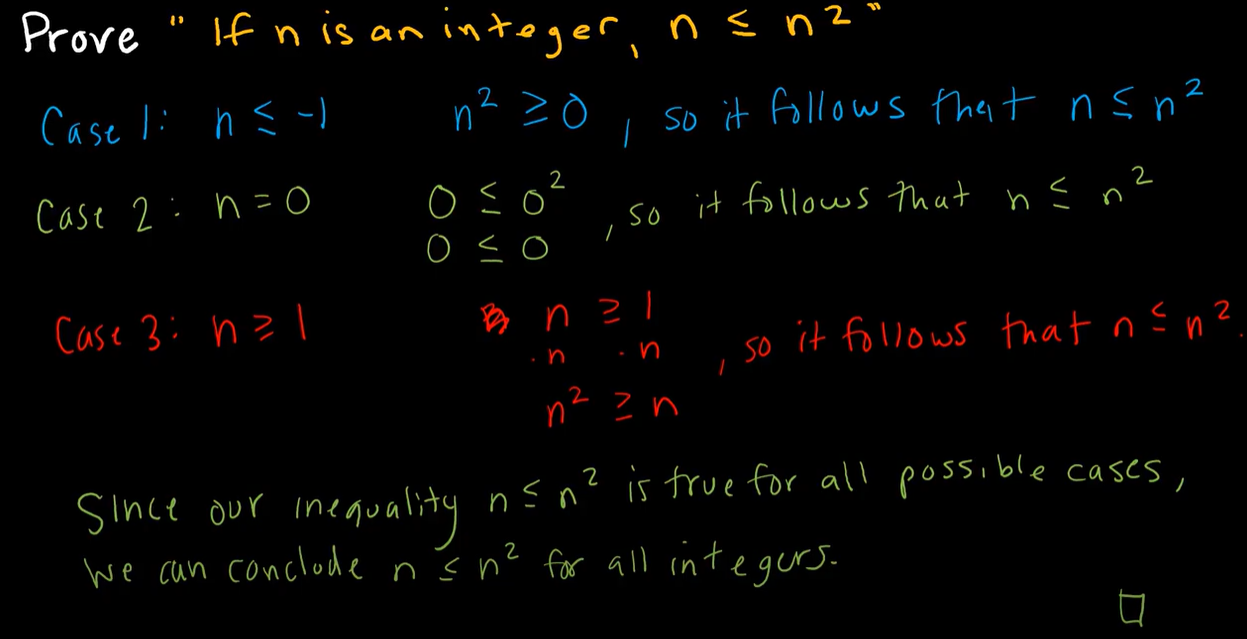 Prove "If n is an integer, n ≤ n²"
Case 1: n ≤ -1 n² ≥ 0, so it follows that n ≤ n²
Case 2: n = 0 0 ≤ 0², so it follows that n ≤ n²
0 ≤ 0
Case 3: n ≥ 1 n ≥ 1
·n ·n, so it follows that n ≤ n².
n² ≥ n
Since our inequality n ≤ n² is true for all possible cases,
we can conclude n ≤ n² for all integers.
□